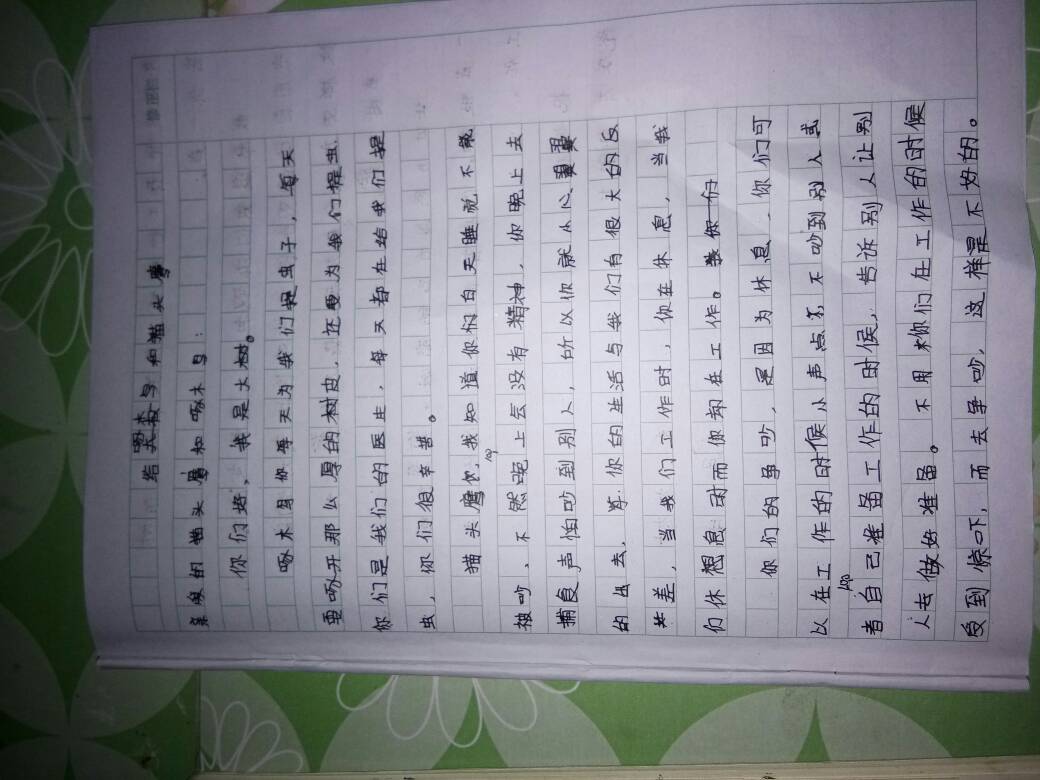 给啄木鸟和猫头鹰
亲爱的猫头鹰和啄木鸟:
你们好,我是大树。
啄木鸟你每天为我们捉虫子,每天
要啄开那么厚的树皮,还要为我们捉虫.
你们是我们的医生,每天都在给我们捉
虫,你们很辛苦。
猫头鹰,我知道你们白天睡觉不能
被吵,不然晚上会没有精神,你晚上去
捕食声怕吵到别人,所以你就小心翼翼
的出去,你的生活与我们有很大的反
差,当我们工作时,你在休息,当我
们休想息时而你却在工作。
你们的争吵,是因为休息,你们可
以在工作的时候小声点不吵到别人或
者自己准备工作的时候,告诉别人让别
人去做好准备。不用你们在工作的时候
受到惊吓,而去争吵,这样是不好的。